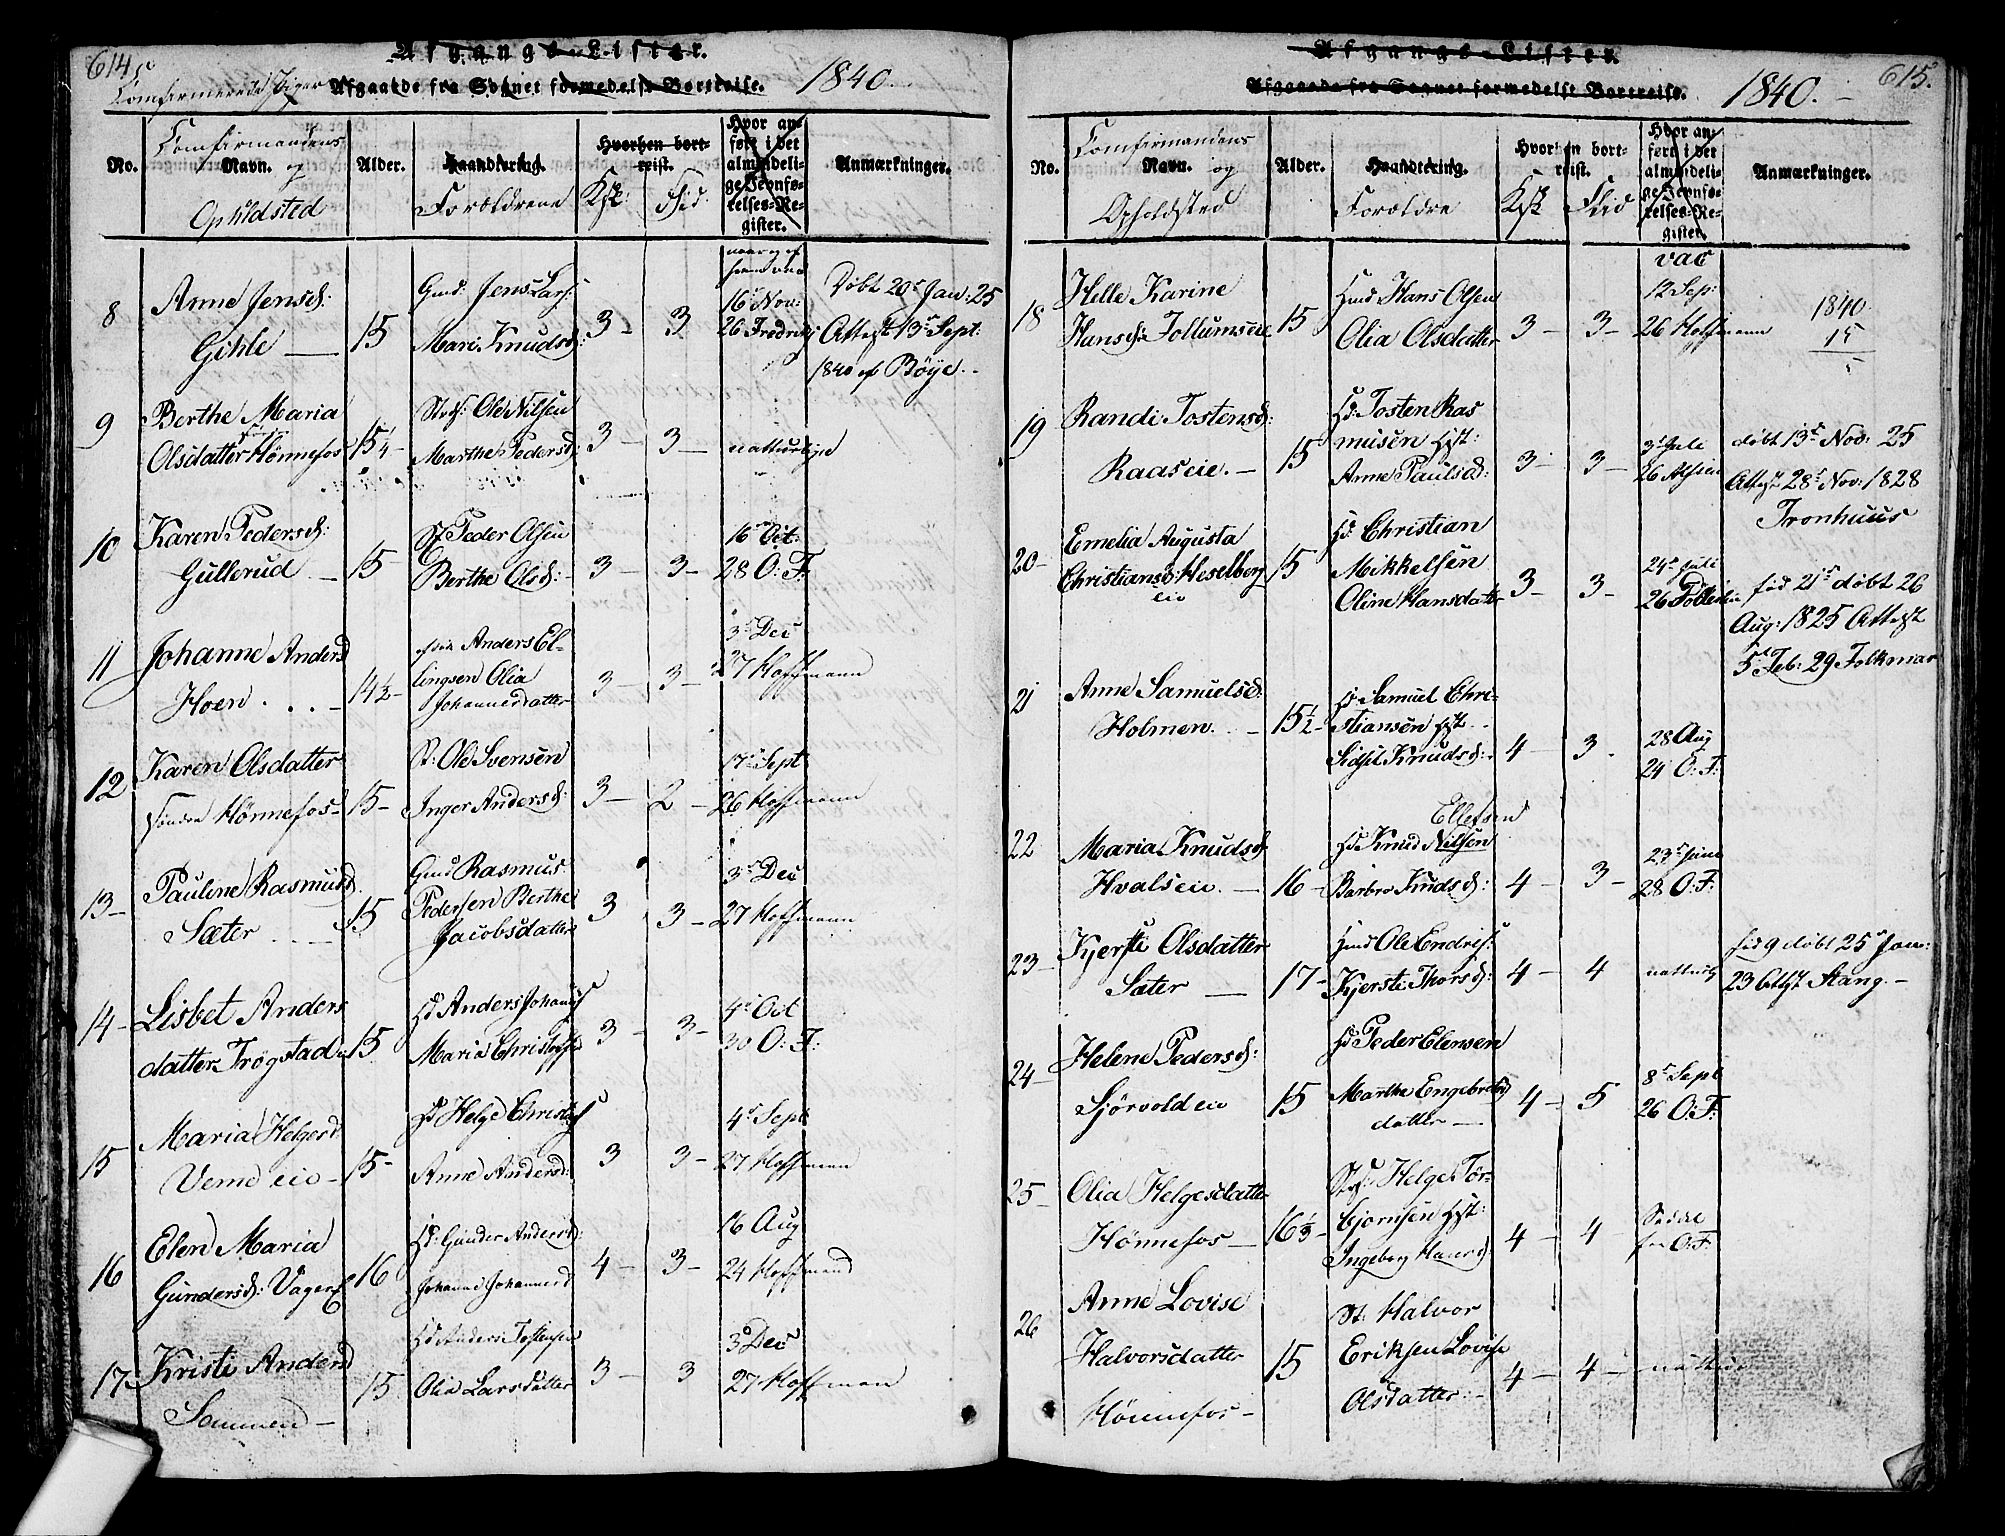 614
Afgangs-Lister.
Comfirmerede Piger
Afgaaede fra Sognet formedelst Bortreise.
1840.
No.
Comfirmandens
Navn.
og
Opholdsted
Alder.
Haandtering.
Forældrene
Hvorhen bort-
reist.
Flid:
Hvor an-
ført i det
almindeli-
ge Jevnfø-
relses-Re-
gister.
Anmærkninger.
8
Anne Jensd:
Gihle
15
Gmd: Jens Lars:
Mari Knudsd:
3
3
16 Nov:
26 Fredriks
Døbt 20r Jan: 25
Attest 13r Sept:
1840 af Böye.
9
Berthe Maria
Olsdatter Hønnefos
15¼
Ole Nilsen
Marthe Pedersd:
3
3
natturlige
10
Karen Pedersd:
Gullerud
15
Peder Olsen
Berthe Olsd:
3
3
16r Oct:
28 O: F:
11
Johanne Andersd
Hoen
14½
Anders El-
lingsen Olia
Johannesdatter
3
3
3r Dec
27 Hoffmann
12
Karen Olsdatter
Hønnefos
15
St: Ole Svensen
Inger Andersd:
3
2
17r Sept
26 Hoffmann
13
Pauline Rasmusd.
Sæter
15
Gmd Rasmus
Pedersen Berthe
Jacobsdatter
3
3
3r Dec
27 Hoffmann
14
Lisbet Anders
datter Trögstad
15
Hd Anders Johans
Maria Christoffd
3
3
4r Oct
30 O: F:
15
Maria Helgesd
Veme eie
15
Hd Helge Christs
Anne Andersd:
3
3
4r Sept
27 Hoffmann
16
Elen Maria
Gundersd: Vager
16
Hd: Gunder Andersd:
Johanne Johannesd
4
3
16 Aug
24 Hoffmand
17
Kristi Andersd
Sammen
15
Hd Anders Tostensen
Olia Larsdatter
3
3
3r Dec
27 Hoffman
615.
Afgangs-Lister.
Afgaaede fra Sognet formedelst Bortreise.
1840.
No.
Comfirmandens
Navn.
og
Opholdsted
Alder.
Haandtering.
Forældre
Hvorhen bort-
reist.
Flid
Hvor an-
ført i det
almindeli-
ge Jevnfø-
relses-Re-
gister.
Anmærkninger.
18
Helle Karine
Hansd: Tollumseie
15
Hmd Hans Olsen
Olia Olsdatter
3
3
vac
12 Sep:
26 Hoffmann
1840
15
19
Randi Tostensd:
Raaseie.
15
Hd: Tosten Ras
musen Hst:
Anne Paulsd:
3
3
3d Juli
26
døbt 13r Nov: 25
Attest 28r Nov: 1828
Tronhuus
20
Emelia Augusta
Christiansd: Heselberg
eie
15
Hd: Christian
Mikkelsen
Oline Hansdatter
3
3
24r Juli
26
fød 21r døbt 26
Aug: 1825 Attest
5t Feb: 29 Folkmar
21
Anne Samuelsd.
Holmen.
15½
Hd: Samuel Chri-
stiansen Hst
Sidsil Knudsd:
4
3
28 Aug
24 O: F:
22
Maria Knudsd
Hvalseie
16
Ellefsen
Hd Knud Nilsen
Barbro Knudsd:
4
3
23r Juni
28 O: F:
23
Kjersti Olsdatter
Sæter
17
Hmd Ole Endris:
Kjersti Thorsd:
4
4
natturlig
fød 9 døbt 25r Jan:
23 Attest Stang.
24
Helene Pedersd:
Sjørvold eie
15
Hd Peder Elensen
Marthe Engebrets
datter
4
5
8r Sept
26 O: F:
25
Olia Helgesdatter
Hønnefos
16⅓
Helge Tor-
bjornsen Hst:
Ingeborg
4
4
O: F:
26
Anne Lovise
Halvorsdatter
Hønnefos
15
St: Halvor
Eriksen Lovise
Olsdatter
4
4